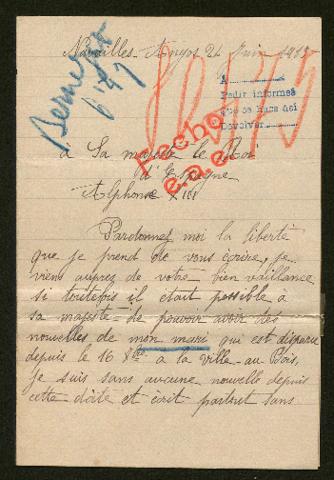 Navailles-Angos 21 Juin 1915
Bernezo
6'47
A
Pedir informes
que se hara así
Devolver
Hecho
e.a.e.
à Sa majesté le Roi
d'Espagne
Alphonse XIII
Pardonnez moi la liberté
que je prend de vous écrire, je
viens aupres de votre bien vaillance
si toutefois il était possible à
sa majesté de pouvoir avoir des
nouvelles de mon mari qui est disparu
depuis le 16 8bre à la Ville-au-Bois,
je suis sans aucune nouvelle depuis
cette date et écrit partout sans